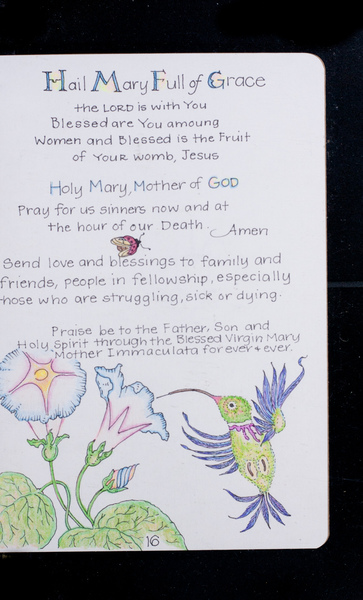 Hail Mary Full of Grace
the LORD is with You
Blessed are You amoung
Women and Blessed is the Fruit
of Your womb, Jesus
Holy Mary, Mother of GOD
Pray for us sinners now and at
the hour of our Death.
Amen
Send love and blessings to family and
friends, people in fellowship, especially
those who are struggling, sick or dying.
Praise be to the Father, Son and
Holy Spirit through the Blessed Virgin Mary
Mother Immaculata for ever + ever.
16